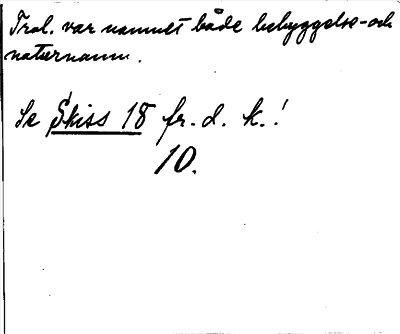 Trol. var namnet både bebyggelse- och
naturnamn.
Se Skiss 18 fr. d. k.!
10.